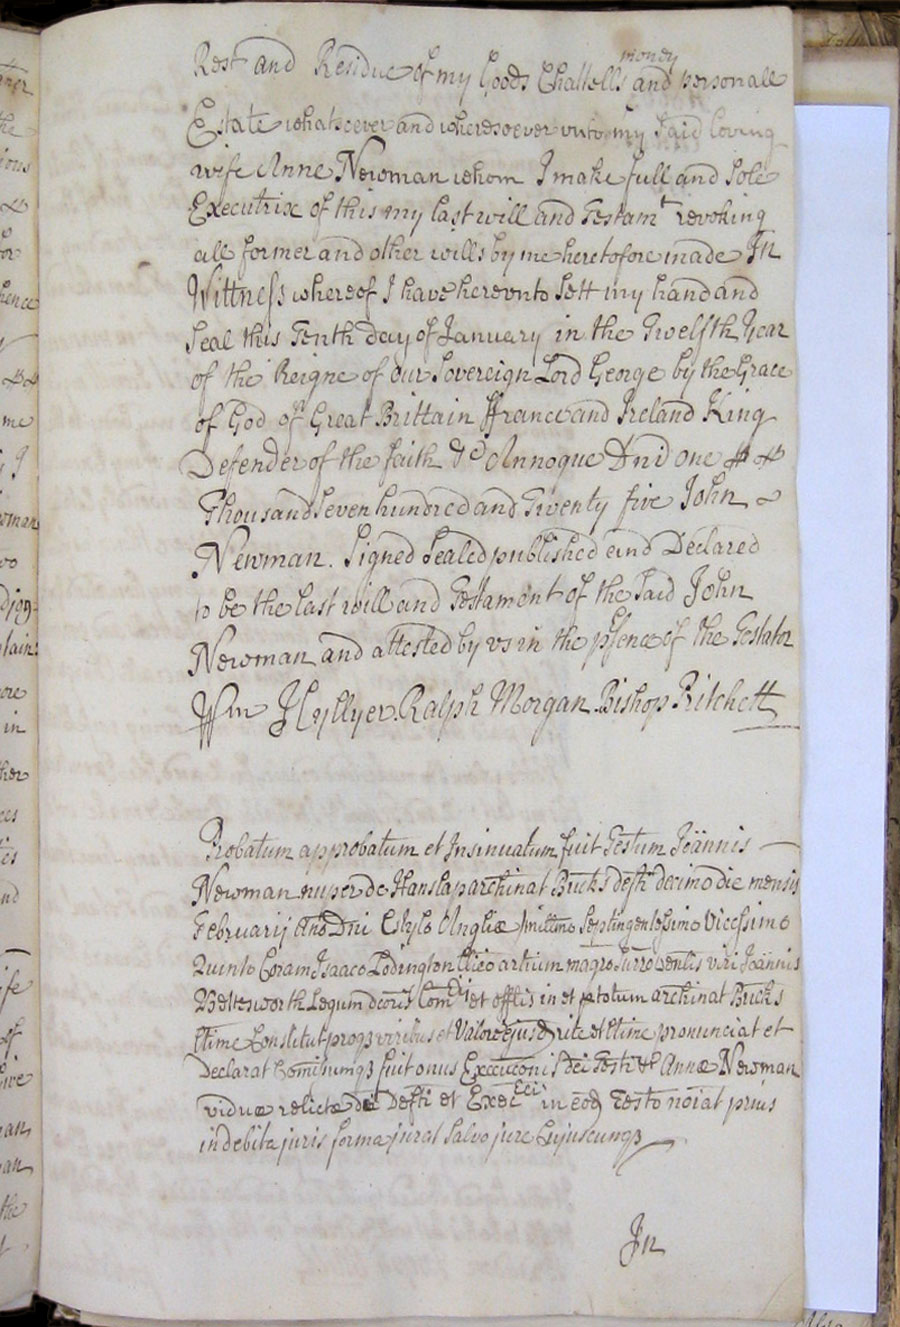 money
Rest and Residue of my Goods Chattells and personall
Estate whatsoever and wheresoever unto my said loving
wife Anne Newman whom I make full and sole
Executrix of this my last will and Testamt revoking
all former and other wills by me heretofore made In
Wittness whereof I have hereunto sett my hand and
Seal this Tenth day of January in the Twelfth Year
of the Reigne of our Sovereign Lord George by the Grace
of God of Great Brittain ffrance and Ireland King
Defender of the faith &c Annoque Dni one
Thousand Seven hundred and Twenty five John
Newman. Signed Sealed published and Declared
to be the last will and Testament of the said John
Newman and attested by vs in the psence of the Testator
Wm Hyllyer. Ralph Morgan. Bishop Pitchett
Probatum approbatum et Insinuatum fuit Testum Joannis
Newman nuper de Hanslap archinat Bucks defti decimo die mensis
Februarij Ano Dni Stylo Angliæ millimo Septingentesimo Vicessimo
Quinto Coram Isaaco Todington Clico artium magro Surro ventis viri Joannis
Bettesworth Legum dcoris et offlis in et p totum archinat Bucks
ltime Constitut proqs viribus et Valore ejusd rite et ltime pronunciat et
Declarat Comissumqs fuit onus Execuconis dci Testi Annæ Newman
viduæ relictæ dci Defti et Exec in eod Testo noiat prius
in debita juris forma jurat Salvo jure Cujuscunqs
In